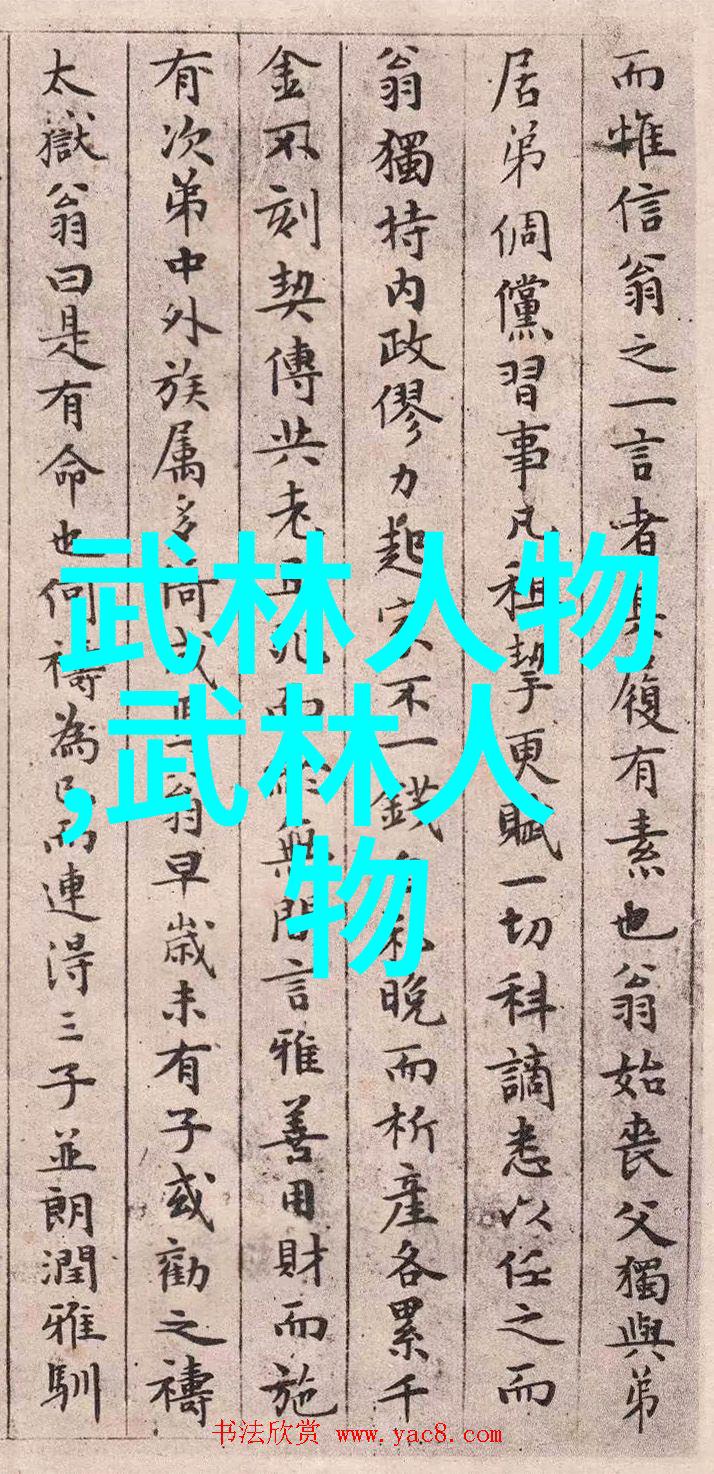 而惟信翁之一言者其履有素也翁始丧父獨與弟
居弟倜儻習事凡租挈更賦一切科謫悉以任之而
翁獨持内政僇力起家不一錢私晚而析產各累千
金不刻契傳共老而無間言雅善用財而施
有次弟中外族属多翁早歲未有子或勸之禱
太嶽翁曰是有命也何禱為已而連得三子並朗潤雅馴
武林人物
,武林人
物
书法欣赏 www.yac8.com